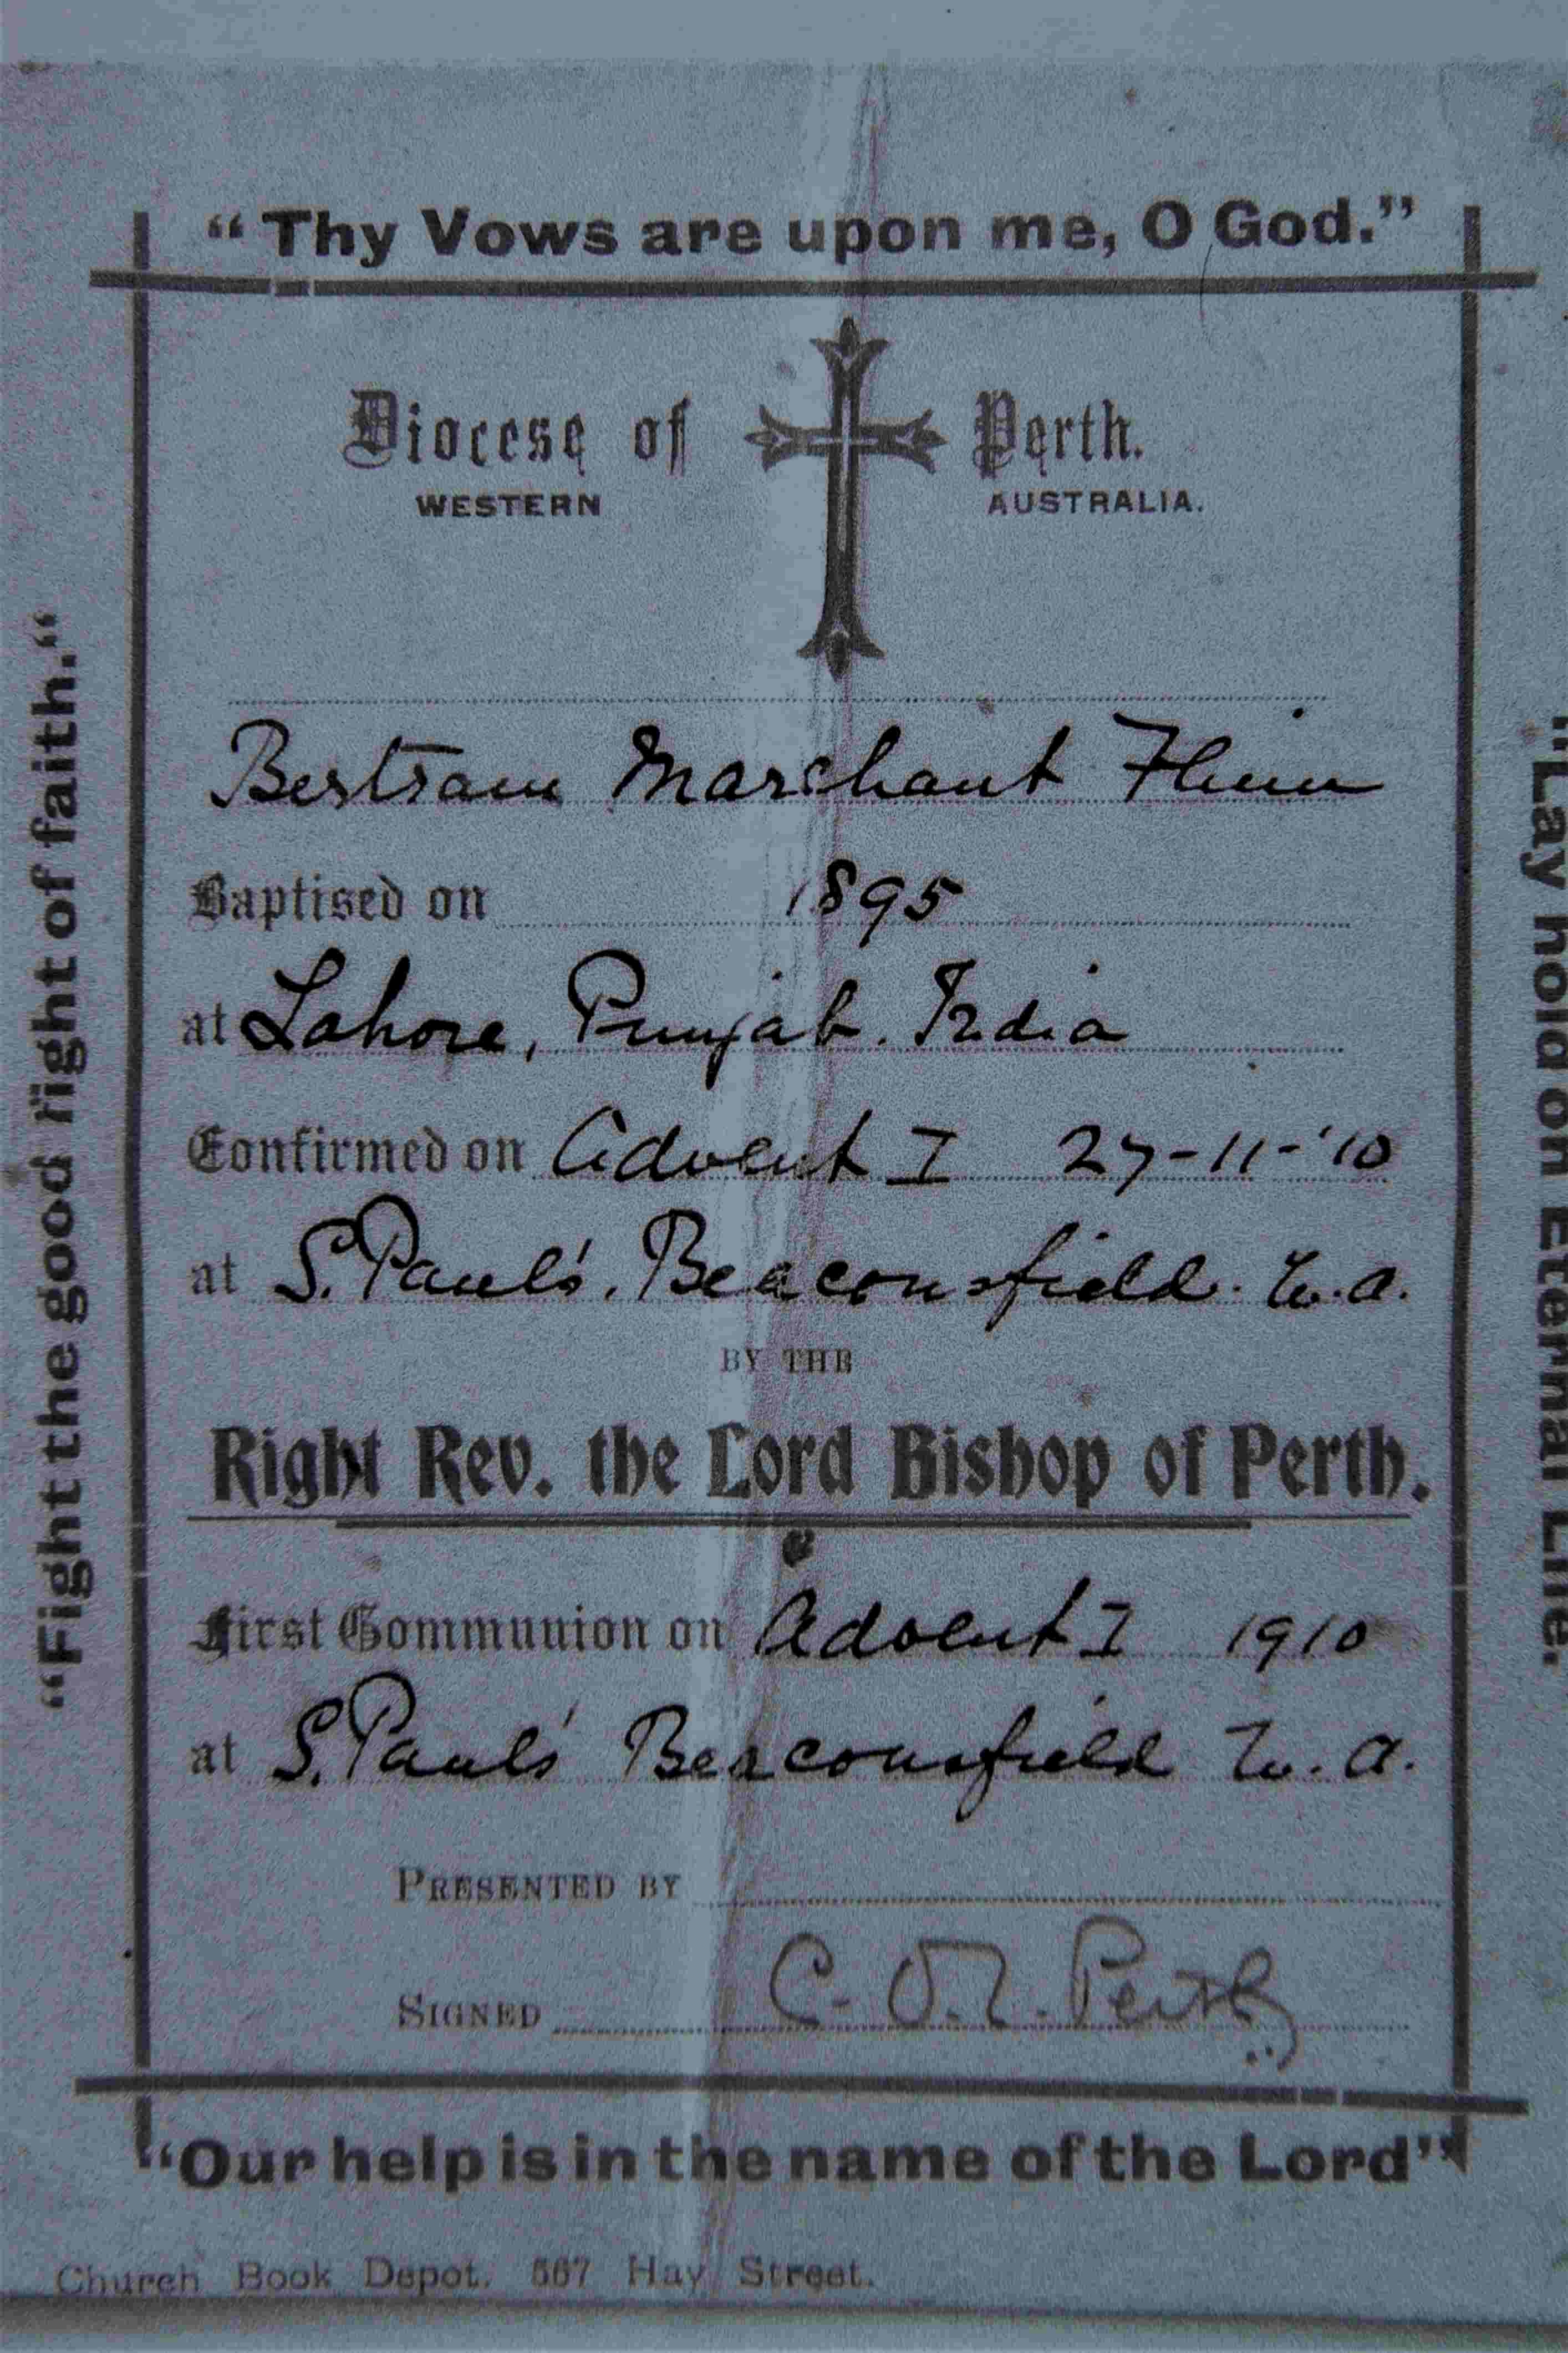 “Thy Vows are upon me, O God.”
Diocese of Perth.
WESTERN AUSTRALIA.
Bertram Marchant Flinn
Baptised on 1895
at Lahore, Punjab. India
Confirmed on Advent I 27-11-'10
at S. Paul's. Beaconsfield. W.A.
BY THE
Right Rev. the Lord Bishop of Perth.
First Communion on Advent I 1910
at S. Paul's Beaconsfield W.A.
PRESENTED BY
SIGNED C.O.L. Perth
“Our help is in the name of the Lord”
Church Book Depot. 567 Hay Street.
“Fight the good fight of faith.“
"Lay hold on Eternal Life."